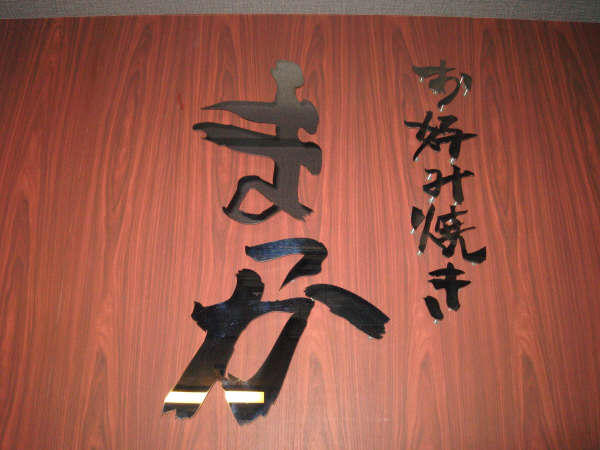 お好み焼き
まっか